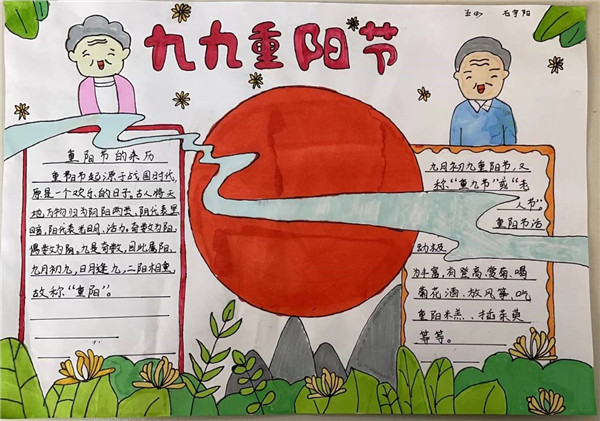 九九重阳节
五(4) 石宇阳
重阳节的来历
重节起源于战国时代,
原是一个欢乐的日子。古人将天
地,万物归为阴阳两类,阴代表黑
暗,阳代表光明、活力,奇数为阳,
偶数为阴。九是奇数,因此属阳,
九月初九,日月逢九,二阳相重,
故称“重阳”。
九月初九重阳节,又
称“重九节”或“老
人节”。
重阳节活
动极
为丰富,有登高、赏菊、喝
菊花酒、放风筝、吃
重阳米羔、插茱萸
等等。